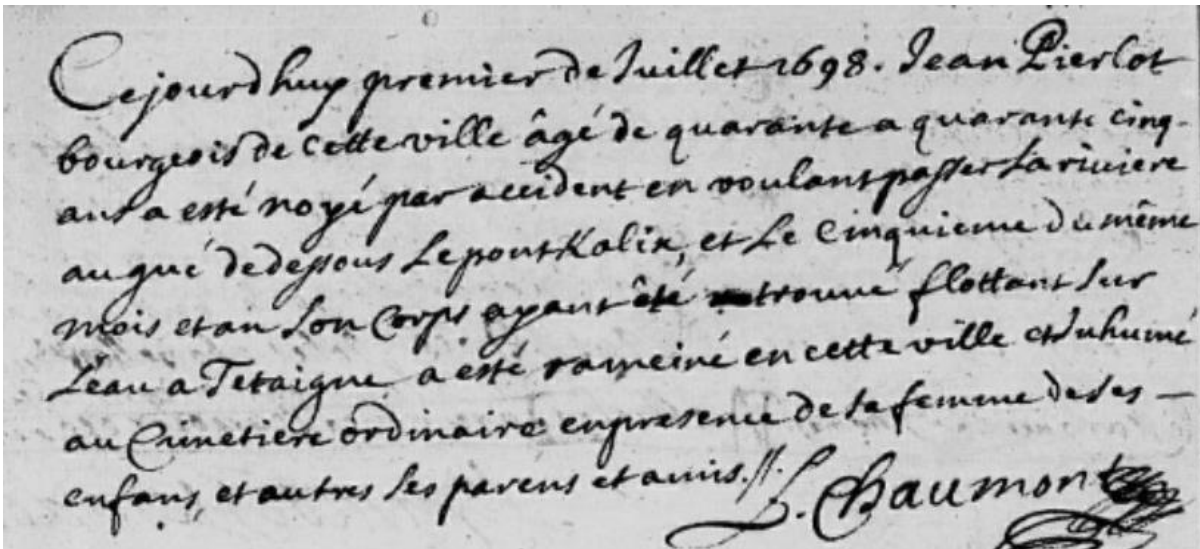 Cejourdhuy premier de Juillet 1698. Jean Pierlot
bourgeois de cette ville âgé de quarante a quarante cinq
ans a esté noyé par accident en voulant passer la riviere
au gué de dessous le pont Kalik, et le cinquieme du même
mois et an son corps ayant été trouvé flottant sur
l'eau a Tetaigne a esté rameiné en cette ville et Inhumé
au Cimetiere ordinaire en presence de sa femme de ses —
enfans, et autres ses parens et amis.//. Chaumont